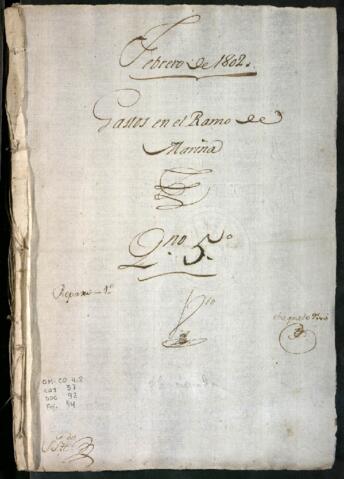 Febrero de 1802.
Gastos en el Ramo de
Marina
Q.no 5.o
Reparo 1.o
OM-CO 4.8
CAJ 57
DOC 92
FOL 94